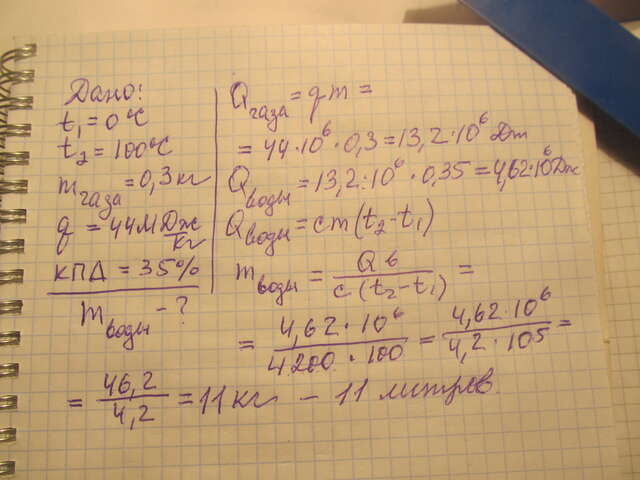 Дано:
t₁ = 0°C
t₂ = 100°C
m газа = 0,3 кг
q = 44 МДж/кг
КПД = 35%
m воды - ?
Q газа = qm =
= 44·10⁶·0,3 = 13,2·10⁶ Дж
Q воды = 13,2·10⁶·0,35 = 4,62·10⁶ Дж
Q воды = cm(t₂-t₁)
m воды = Qв / c(t₂-t₁) =
= 4,62·10⁶ / 4200·100 = 4,62·10⁶ / 4,2·10⁵ =
= 46,2 / 4,2 = 11 кг - 11 литров.